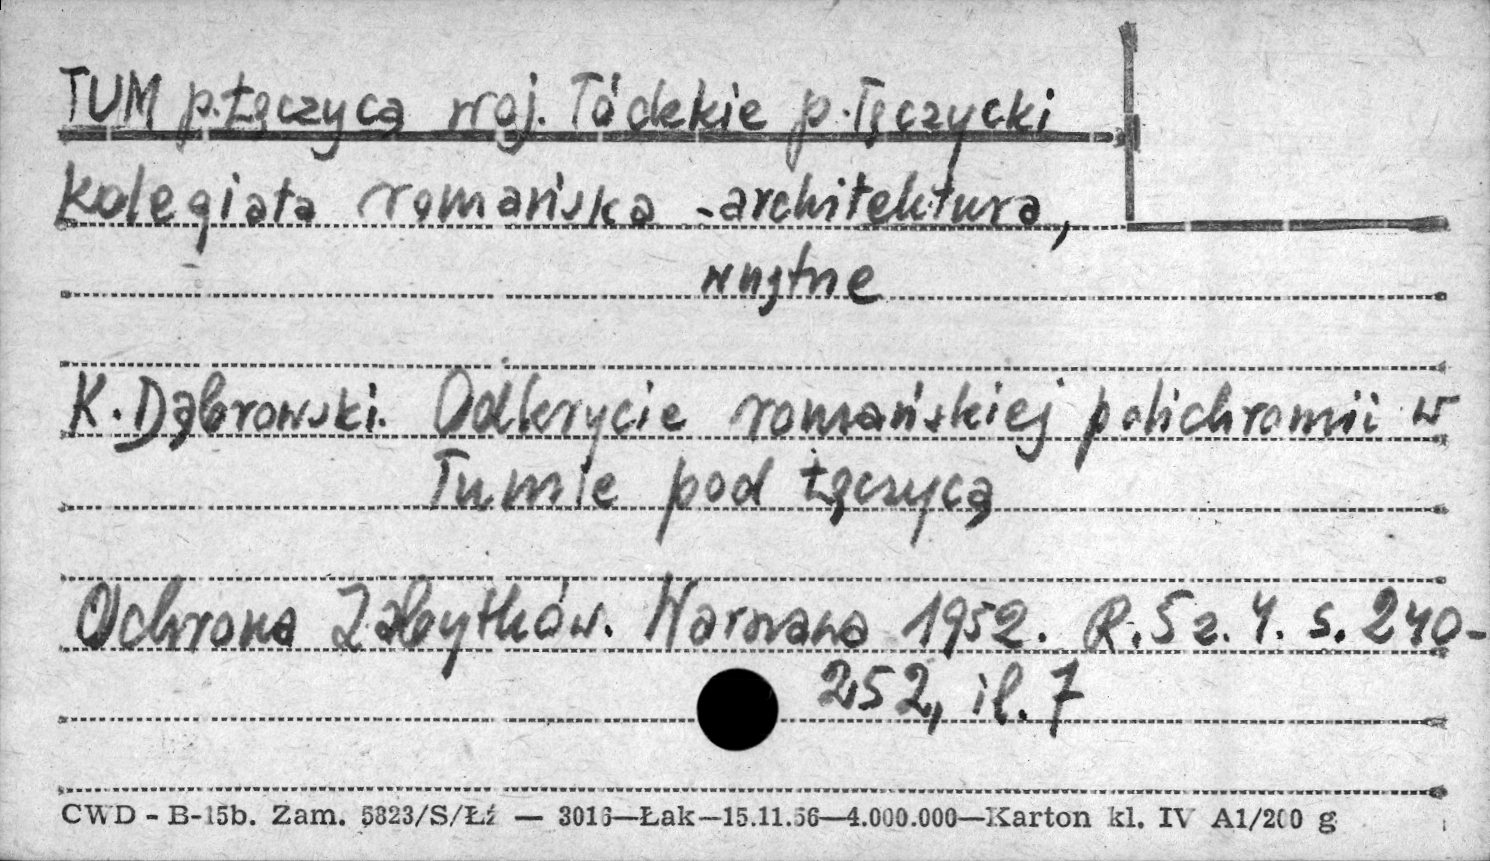 TUM p.Łęczycą woj. Łódzkie p.Łęczycki
Kolegiata romańska - architektura,
wnętrze
K. Dąbrowski. Odkrycie romańskiej polichromii w
Tumie pod Łęczycą
Ochrona Zabytków. Warszawa 1952. R.5 z. 4. s. 240-
252, il. 7
CWD - B-15b. Zam. 5823/S/Łź — 3016—Łak—15.11.56—4.000.000—Karton kl. IV A1/200 g